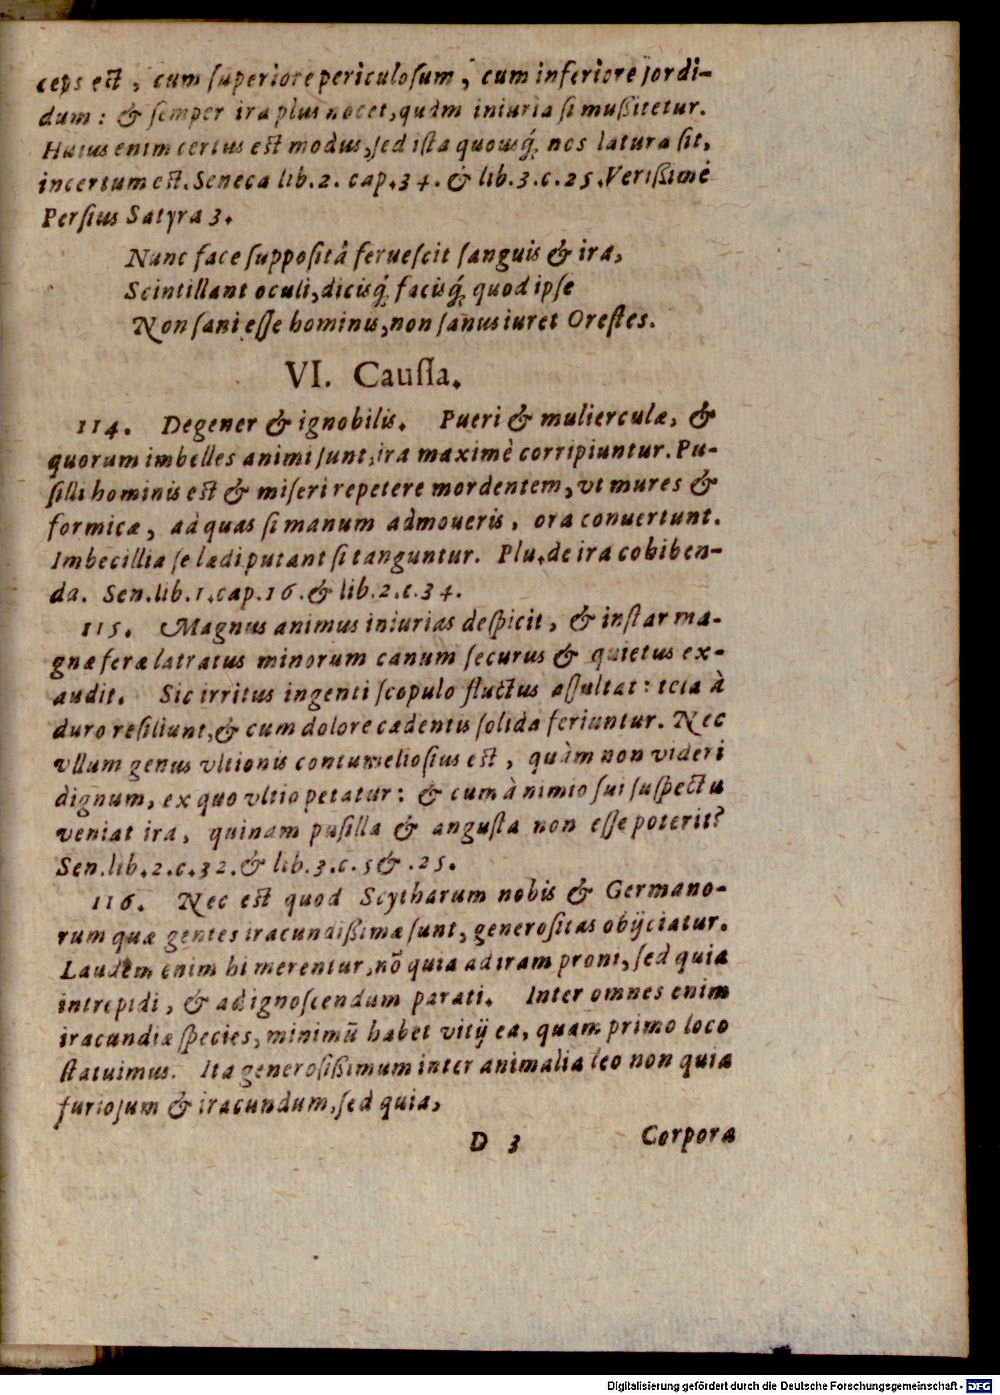 ceps est, cum ſuperiore periculoſum, cum inferiore ſordi-
dum: & ſemper ira plus nocet, quàm iniuria ſi mußitetur.
Huius enim certus est modus, ſed iſta quouſq́; nos latura ſit,
incertum est. Seneca lib.2. cap.34. & lib.3.c.25. Verißimè
Perſius Satyra 3.
Nunc face ſuppoſitâ ferueſcit ſanguis & ira,
Scintillant oculi, dicisq́; facisq́; quod ipſe
Non ſani eſſe hominis, non ſanus iuret Oreſtes.
VI. Cauſſa.
114. Degener & ignobilis. Pueri & mulierculæ, &
quorum imbelles animi ſunt, ira maximè corripiuntur. Pu-
ſilli hominis est & miſeri repetere mordentem, vt mures &
formicæ, ad quas ſi manum admoueris, ora conuertunt.
Imbecillia ſe lædi putant ſi tanguntur. Plu. de ira cohiben-
da. Sen. lib.1. cap.16. & lib.2.c.34.
115. Magnus animus iniurias deſpicit, & inſtar ma-
gnæ feræ latratus minorum canum ſecurus & quietus ex-
audit. Sic irritus ingenti ſcopulo fluctus aſſultat: tela à
duro reſiliunt, & cum dolore cædentis ſolida feriuntur. Nec
vllum genus vltionis contumelioſius est, quàm non videri
dignum, ex quo vltio petatur: & cum à nimio ſui ſuſpectu
veniat ira, quinam puſilla & anguſta non eſſe poterit?
Sen. lib.2.c.32. & lib.3.c.5 & .25.
116. Nec est quod Scytharum nobis & Germano-
rum quæ gentes iracundißimæ ſunt, generoſitas obijciatur.
Laudem enim hi merentur, nõ quia ad iram proni, ſed quia
intrepidi, & ad ignoſcendum parati. Inter omnes enim
iracundiæ ſpecies, minimũ habet vitij ea, quam primo loco
statuimus. Ita generoſißimum inter animalia leo non quia
furioſum & iracundum, ſed quia,
D 3 Corpora
Digitalisierung gefördert durch die Deutsche Forschungsgemeinschaft - DFG